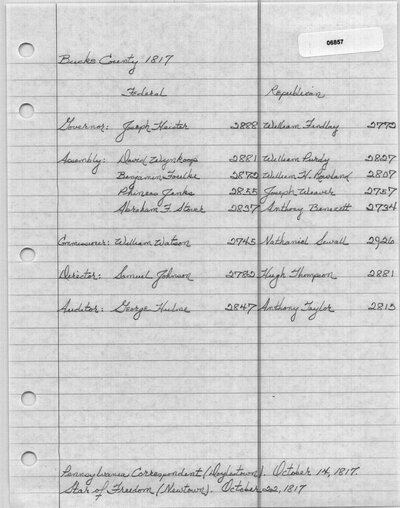 06857
Bucks County 1817
Federal Republican
Governor: Joseph Hiester 2888 William Findlay 2772
Assembly: David Wynkoop 2881 William Purdy 2827
Benjamin Foulke 2872 William H. Rowland 2807
Phineas Jenks 2855 Joseph Weaver 2757
Abraham F. Stover 2837 Anthony 2734
Commissioner: William Watson 2745 Nathaniel Sewall 2926
Director: Samuel Johnson 2782 Hugh Thompson 2881
Auditor: George Hulme 2847 Anthony Taylor 2815
Pennsylvania Correspondent (Doylestown). October 14, 1817.
Star of Freedom (Newtown). October 22, 1817